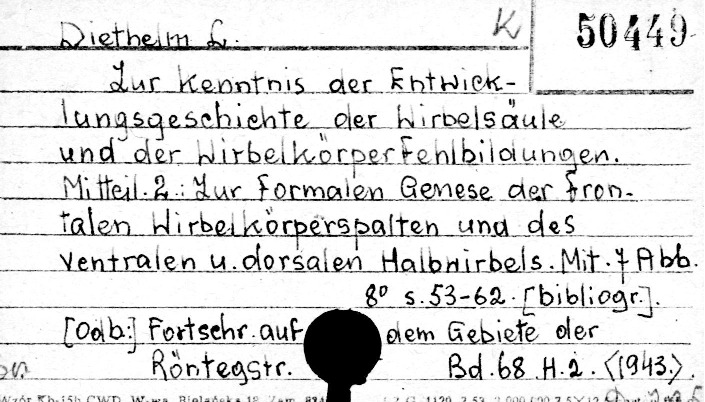 Diethelm L. K 50449
Zur Kenntnis der Entwick-
lungsgeschichte der Wirbelsäule
und der Wirbelkörperfehlbildungen.
Mitteil. 2.: Zur formalen Genese der fron-
talen Wirbelkörperspalten und des
ventralen u. dorsalen Halbwirbels. Mit. 7 Abb.
8° s. 53-62. [bibliogr.].
[Odb:] Fortschr. auf dem Gebiete der
Röntegstr. Bd. 68 H. 2. <1943.>.
Wzór Kb-15b CWD, W-wa, Bielańska 18 Zam.